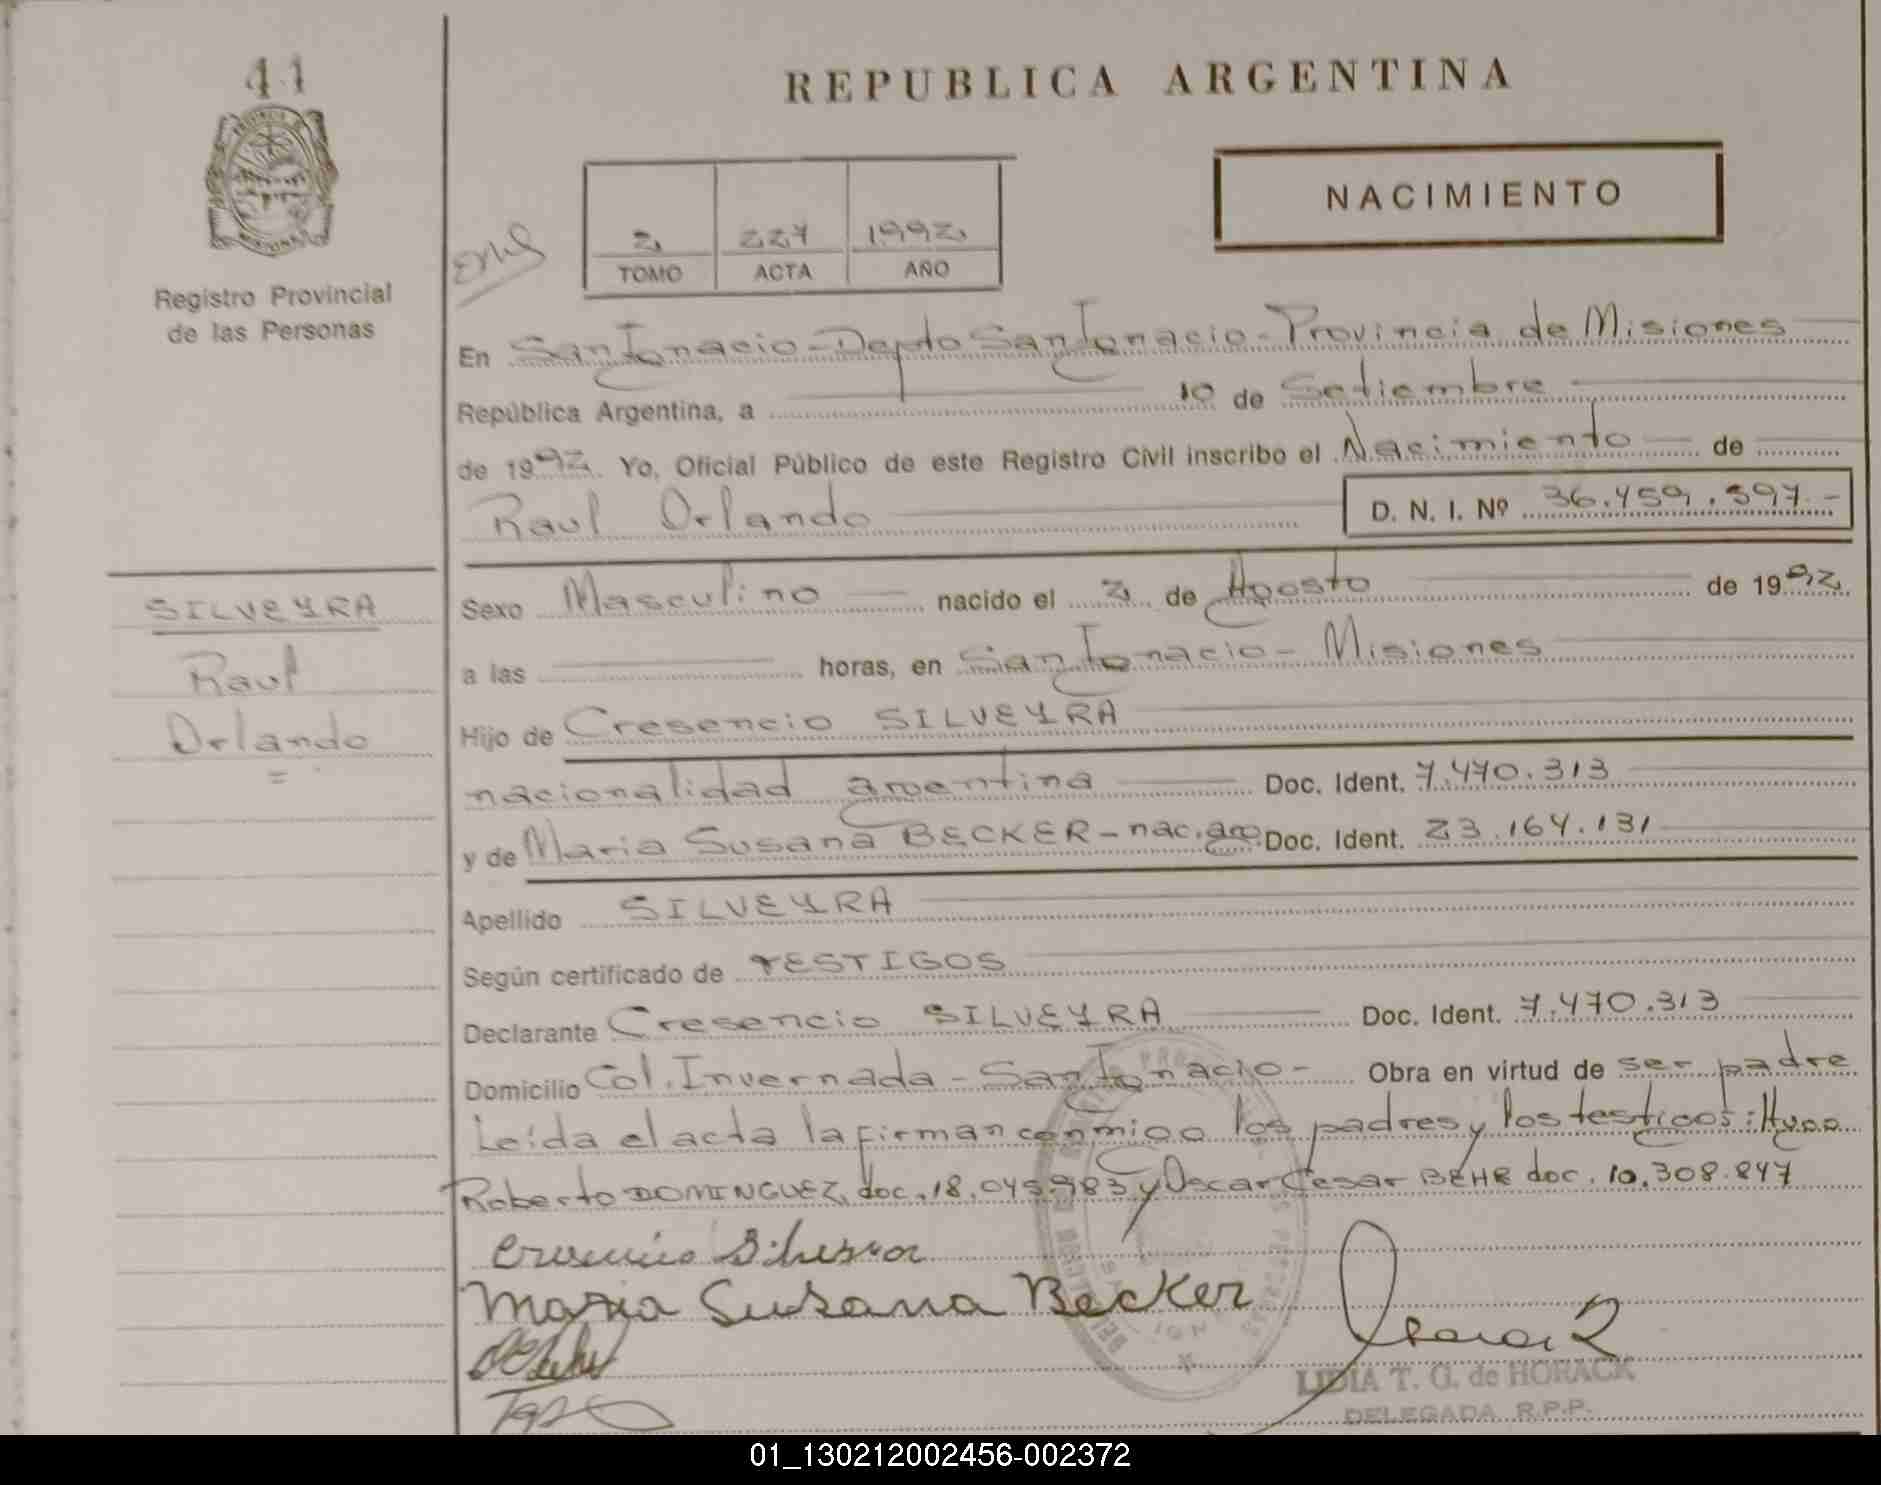 41
REPUBLICA ARGENTINA
NACIMIENTO
2 227 1992
TOMO ACTA AÑO
Registro Provincial
de las Personas
En San Ignacio - Depto San Ignacio - Provincia de Misiones
República Argentina, a 10 de Setiembre
de 1992. Yo, Oficial Público de este Registro Civil inscribo el Nacimiento de
Raul Orlando D. N. I. Nº 36.459.397.-
SILVEYRA
Raul
Orlando
Sexo Masculino nacido el 2 de Agosto de 1992
a las horas, en San Ignacio - Misiones
Hijo de Cresencio SILVEYRA
nacionalidad argentina Doc. Ident. 7.470.313
y de Maria Susana BECKER - nac. arg Doc. Ident. 23.164.131
Apellido SILVEYRA
Según certificado de TESTIGOS
Declarante Cresencio SILVEYRA Doc. Ident. 7.470.313
Domicilio Col. Invernada - San Ignacio - Obra en virtud de ser padre
Leída el acta la firman conmigo los padres y los testigos: Hugo
Roberto DOMINGUEZ, doc. 18.045.983 y Oscar Cesar BEHR doc. 10.308.847
Maria Susana Becker
LIDIA T. G. de HORACK
DELEGADA R.P.P.
01_130212002456-002372